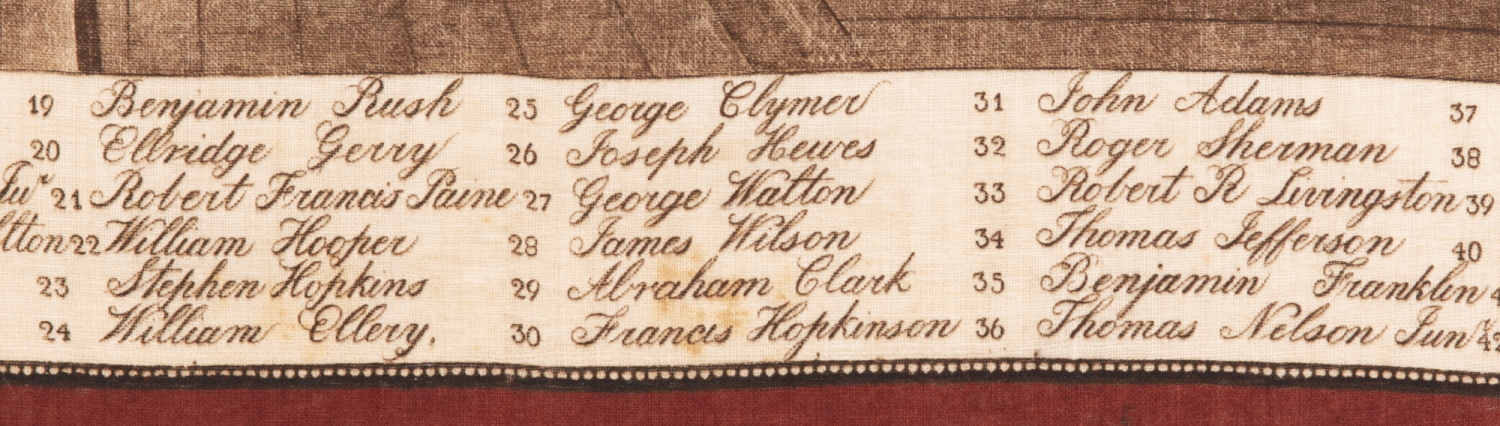 19 Benjamin Rush 25 George Clymer 31 John Adams 37
20 Ellridge Gerry 26 Joseph Hewes 32 Roger Sherman 38
Junr 21 Robert Francis Paine 27 George Walton 33 Robert R Livingston 39
lton 22 William Hooper 28 James Wilson 34 Thomas Jefferson 40
23 Stephen Hopkins 29 Abraham Clark 35 Benjamin Franklin 4
24 William Ellery. 30 Francis Hopkinson 36 Thomas Nelson Junr 42